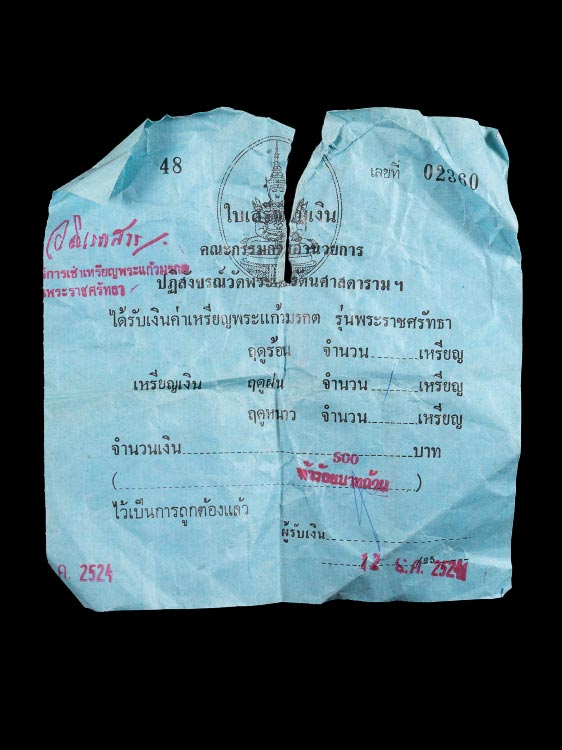 48
เลขที่ 02360
ใบเสร็จรับเงิน
คณะกรรมการอำนวยการ
ปฏิสังขรณ์วัดพระศรีรัตนศาสดาราม ฯ
การเช่าเหรียญพระแก้วมรกต
พระราชศรัทธา
ได้รับเงินค่าเหรียญพระแก้วมรกต รุ่นพระราชศรัทธา
ฤดูร้อน จำนวน........เหรียญ
เหรียญเงิน ฤดูฝน จำนวน...../...เหรียญ
ฤดูหนาว จำนวน........เหรียญ
จำนวนเงิน........500........บาท
(........ห้าร้อยบาทถ้วน........)
ไว้เป็นการถูกต้องแล้ว
ผู้รับเงิน........
ค. 2524
12 2524